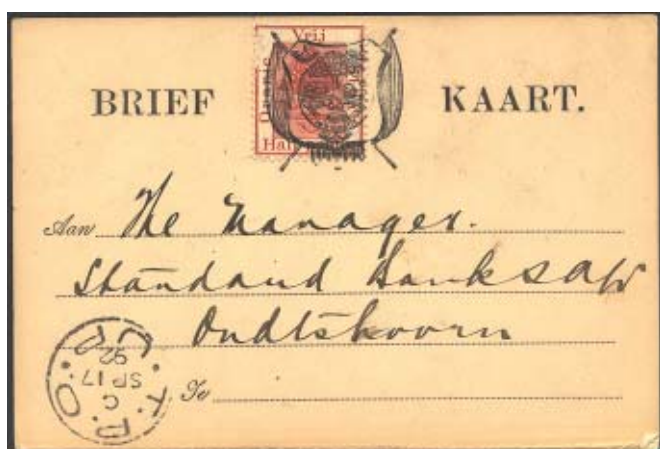 BRIEF KAART.
Vrij
Aan The Manager.
Standard Bank S Afr
Oudtshoorn
Te
T.P.O
C
SP 17
92